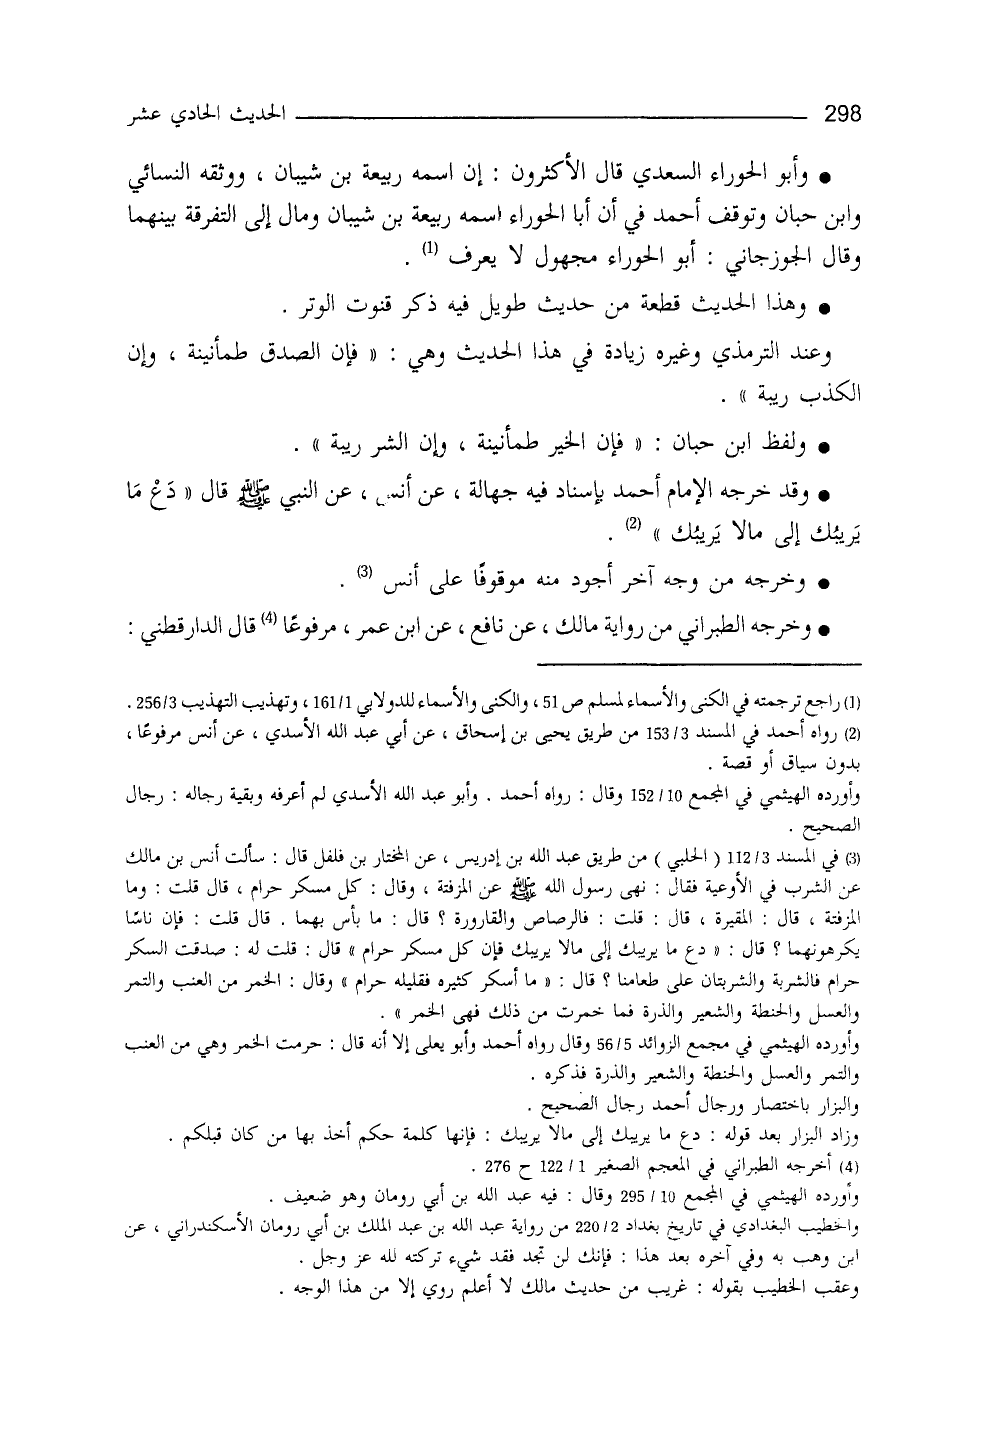 298 الحديث الحادي عشر
• وأبو الحوراء السعدي قال الأكثرون : إن اسمه ربيعة بن شيبان ، ووثقه النسائي
وابن حبان وتوقف أحمد في أن أبا الحوراء اسمه ربيعة بن شيبان ومال إلى التفرقة بينهما
وقال الجوزجاني : أبو الحوراء مجهول لا يعرف (1) .
• وهذا الحديث قطعة من حديث طويل فيه ذكر قنوت الوتر .
وعند الترمذي وغيره زيادة في هذا الحديث وهي : « فإن الصدق طمأنينة ، وإن
الكذب ريبة » .
• ولفظ ابن حبان : « فإن الخير طمأنينة ، وإن الشر ريبة » .
• وقد خرجه الإمام أحمد بإسناد فيه جهالة ، عن أنس ، عن النبي ﷺ قال « دَعْ مَا
يَريبُك إلى مالا يَريبُك » (2) .
• وخرجه من وجه آخر أجود منه موقوفًا على أنس (3) .
• وخرجه الطبراني من رواية مالك ، عن نافع ، عن ابن عمر ، مرفوعًا (4) قال الدارقطني :
(1) راجع ترجمته في الكنى والأسماء لمسلم ص 51 ، والكنى والأسماء للدولابي 161/1 ، وتهذيب التهذيب 256/3 .
(2) رواه أحمد في المسند 153/3 من طريق يحيى بن إسحاق ، عن أبي عبد الله الأسدي ، عن أنس مرفوعًا ،
بدون سياق أو قصة .
وأورده الهيثمي في المجمع 152/10 وقال : رواه أحمد . وأبو عبد الله الأسدي لم أعرفه وبقية رجاله : رجال
الصحيح .
(3) في المسند 112/3 ( الحلبي ) من طريق عبد الله بن إدريس ، عن المختار بن فلفل قال : سألت أنس بن مالك
عن الشرب في الأوعية فقال : نهى رسول الله ﷺ عن المزفتة ، وقال : كل مسكر حرام ، قال قلت : وما
المزفتة ، قال : المقيرة ، قال : قلت : فالرصاص والقارورة ؟ قال : ما بأس بهما . قال قلت : فإن ناسًا
يكرهونهما ؟ قال : « دع ما يريبك إلى مالا يريبك فإن كل مسكر حرام » قال : قلت له : صدقت السكر
حرام فالشربة والشربتان على طعامنا ؟ قال : « ما أسكر كثيره فقليله حرام » وقال : الخمر من العنب والتمر
والعسل والحنطة والشعير والذرة فما خمرت من ذلك فهى الخمر » .
وأورده الهيثمي في مجمع الزوائد 56/5 وقال رواه أحمد وأبو يعلى إلا أنه قال : حرمت الخمر وهي من العنب
والتمر والعسل والحنطة والشعير والذرة فذكره .
والبزار باختصار ورجال أحمد رجال الصحيح .
وزاد البزار بعد قوله : دع ما يريبك إلى مالا يريبك : فإنها كلمة حكم أخذ بها من كان قبلكم .
(4) أخرجه الطبراني في المعجم الصغير 122/1 ح 276 .
وأورده الهيثمي في المجمع 295/10 وقال : فيه عبد الله بن أبي رومان وهو ضعيف .
والخطيب البغدادي في تاريخ بغداد 220/2 من رواية عبد الله بن عبد الملك بن أبي رومان الأسكندراني ، عن
ابن وهب به وفي آخره بعد هذا : فإنك لن تجد فقد شيء تركته لله عز وجل .
وعقب الخطيب بقوله : غريب من حديث مالك لا أعلم روي إلا من هذا الوجه .